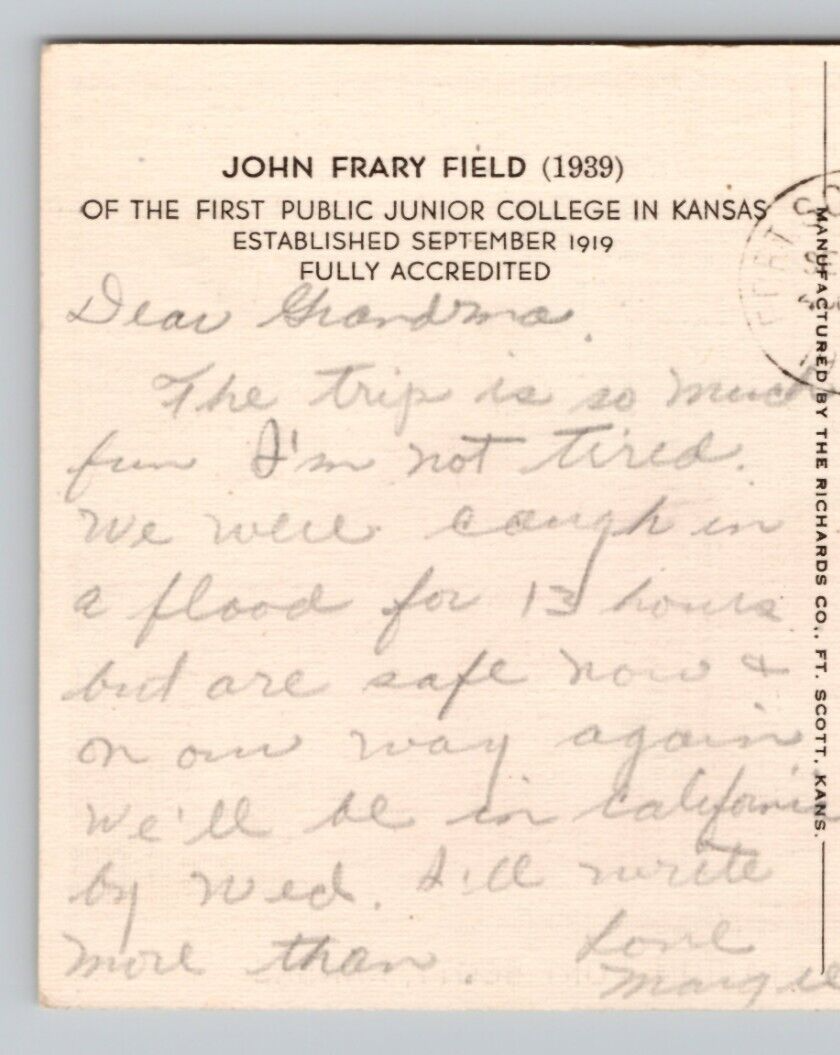 JOHN FRARY FIELD (1939)
OF THE FIRST PUBLIC JUNIOR COLLEGE IN KANSAS
ESTABLISHED SEPTEMBER 1919
FULLY ACCREDITED
Dear Grandma.
The trip is so much
fun I'm not tired.
We were caugh in
a flood for 13 hours
but are safe now &
on our way again
We'll be in California
by Wed. I'll write
more than. Love
Margie
MANUFACTURED BY THE RICHARDS CO., FT. SCOTT, KANS.
FORT